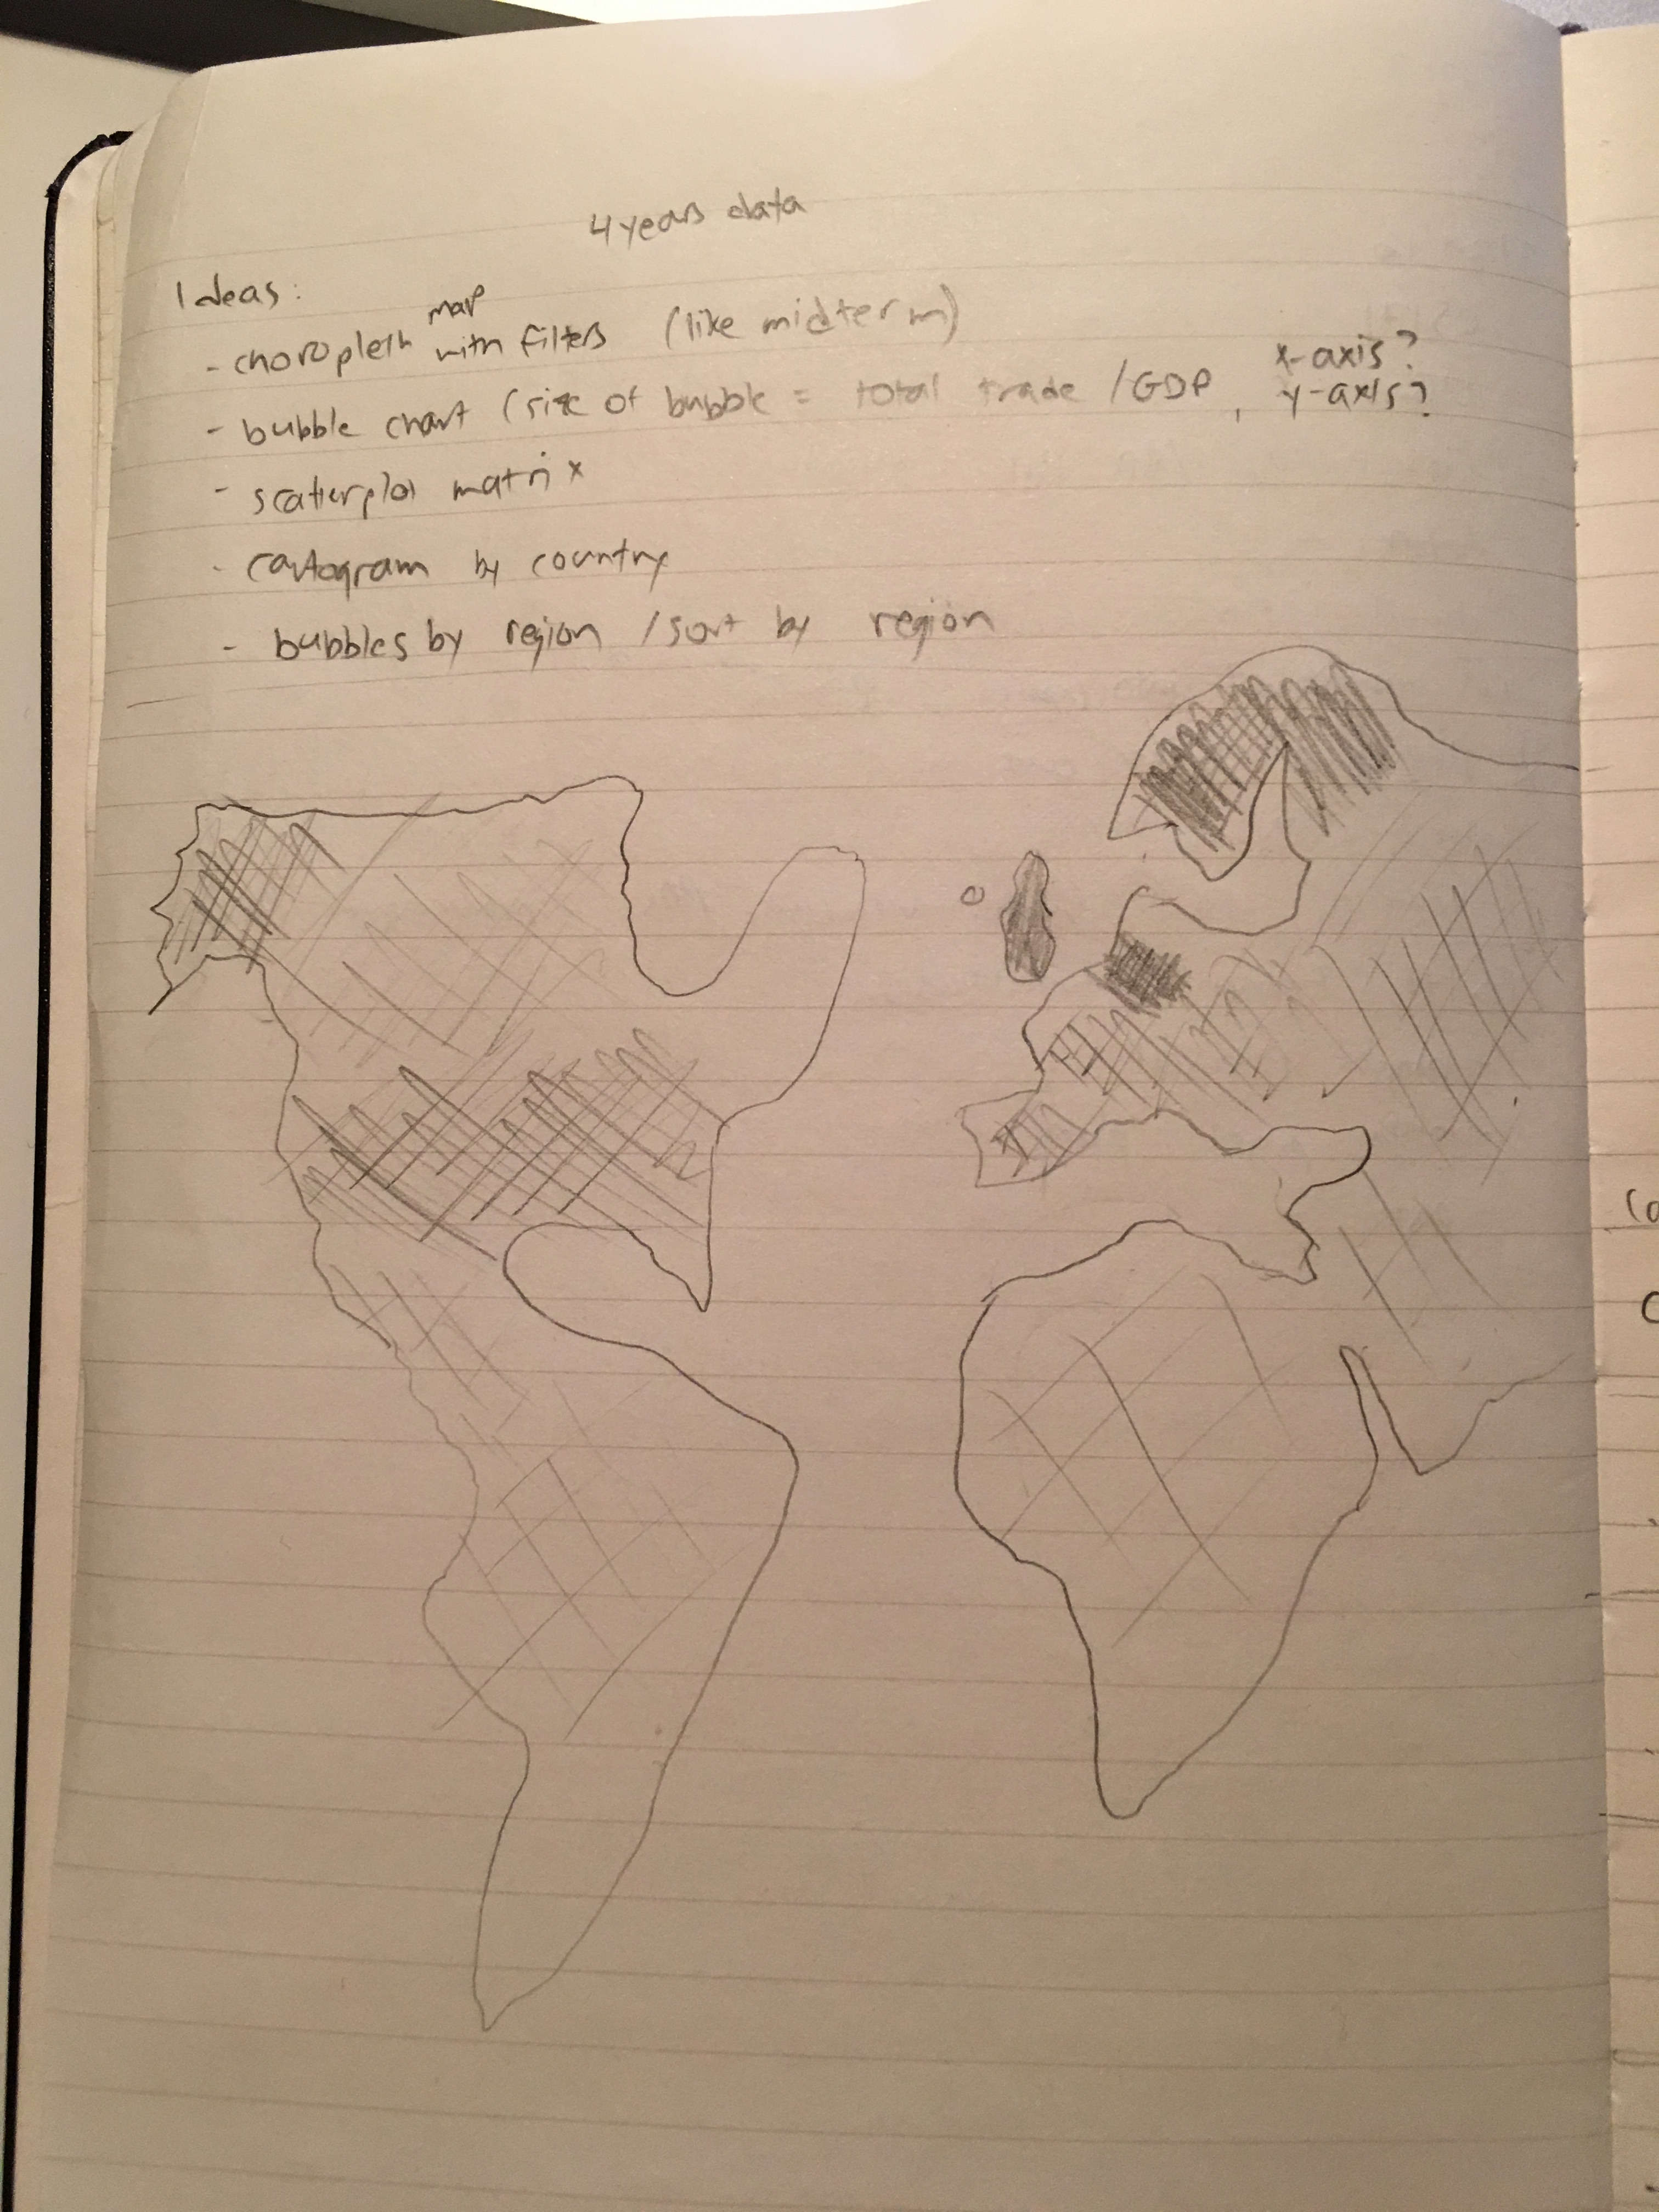 4 years data
Ideas:
- choropleth map with filters (like midterm)
- bubble chart (size of bubble = total trade /GDP, x-axis? y-axis?
- scatterplot matrix
- cartogram by country
- bubbles by region / sort by region